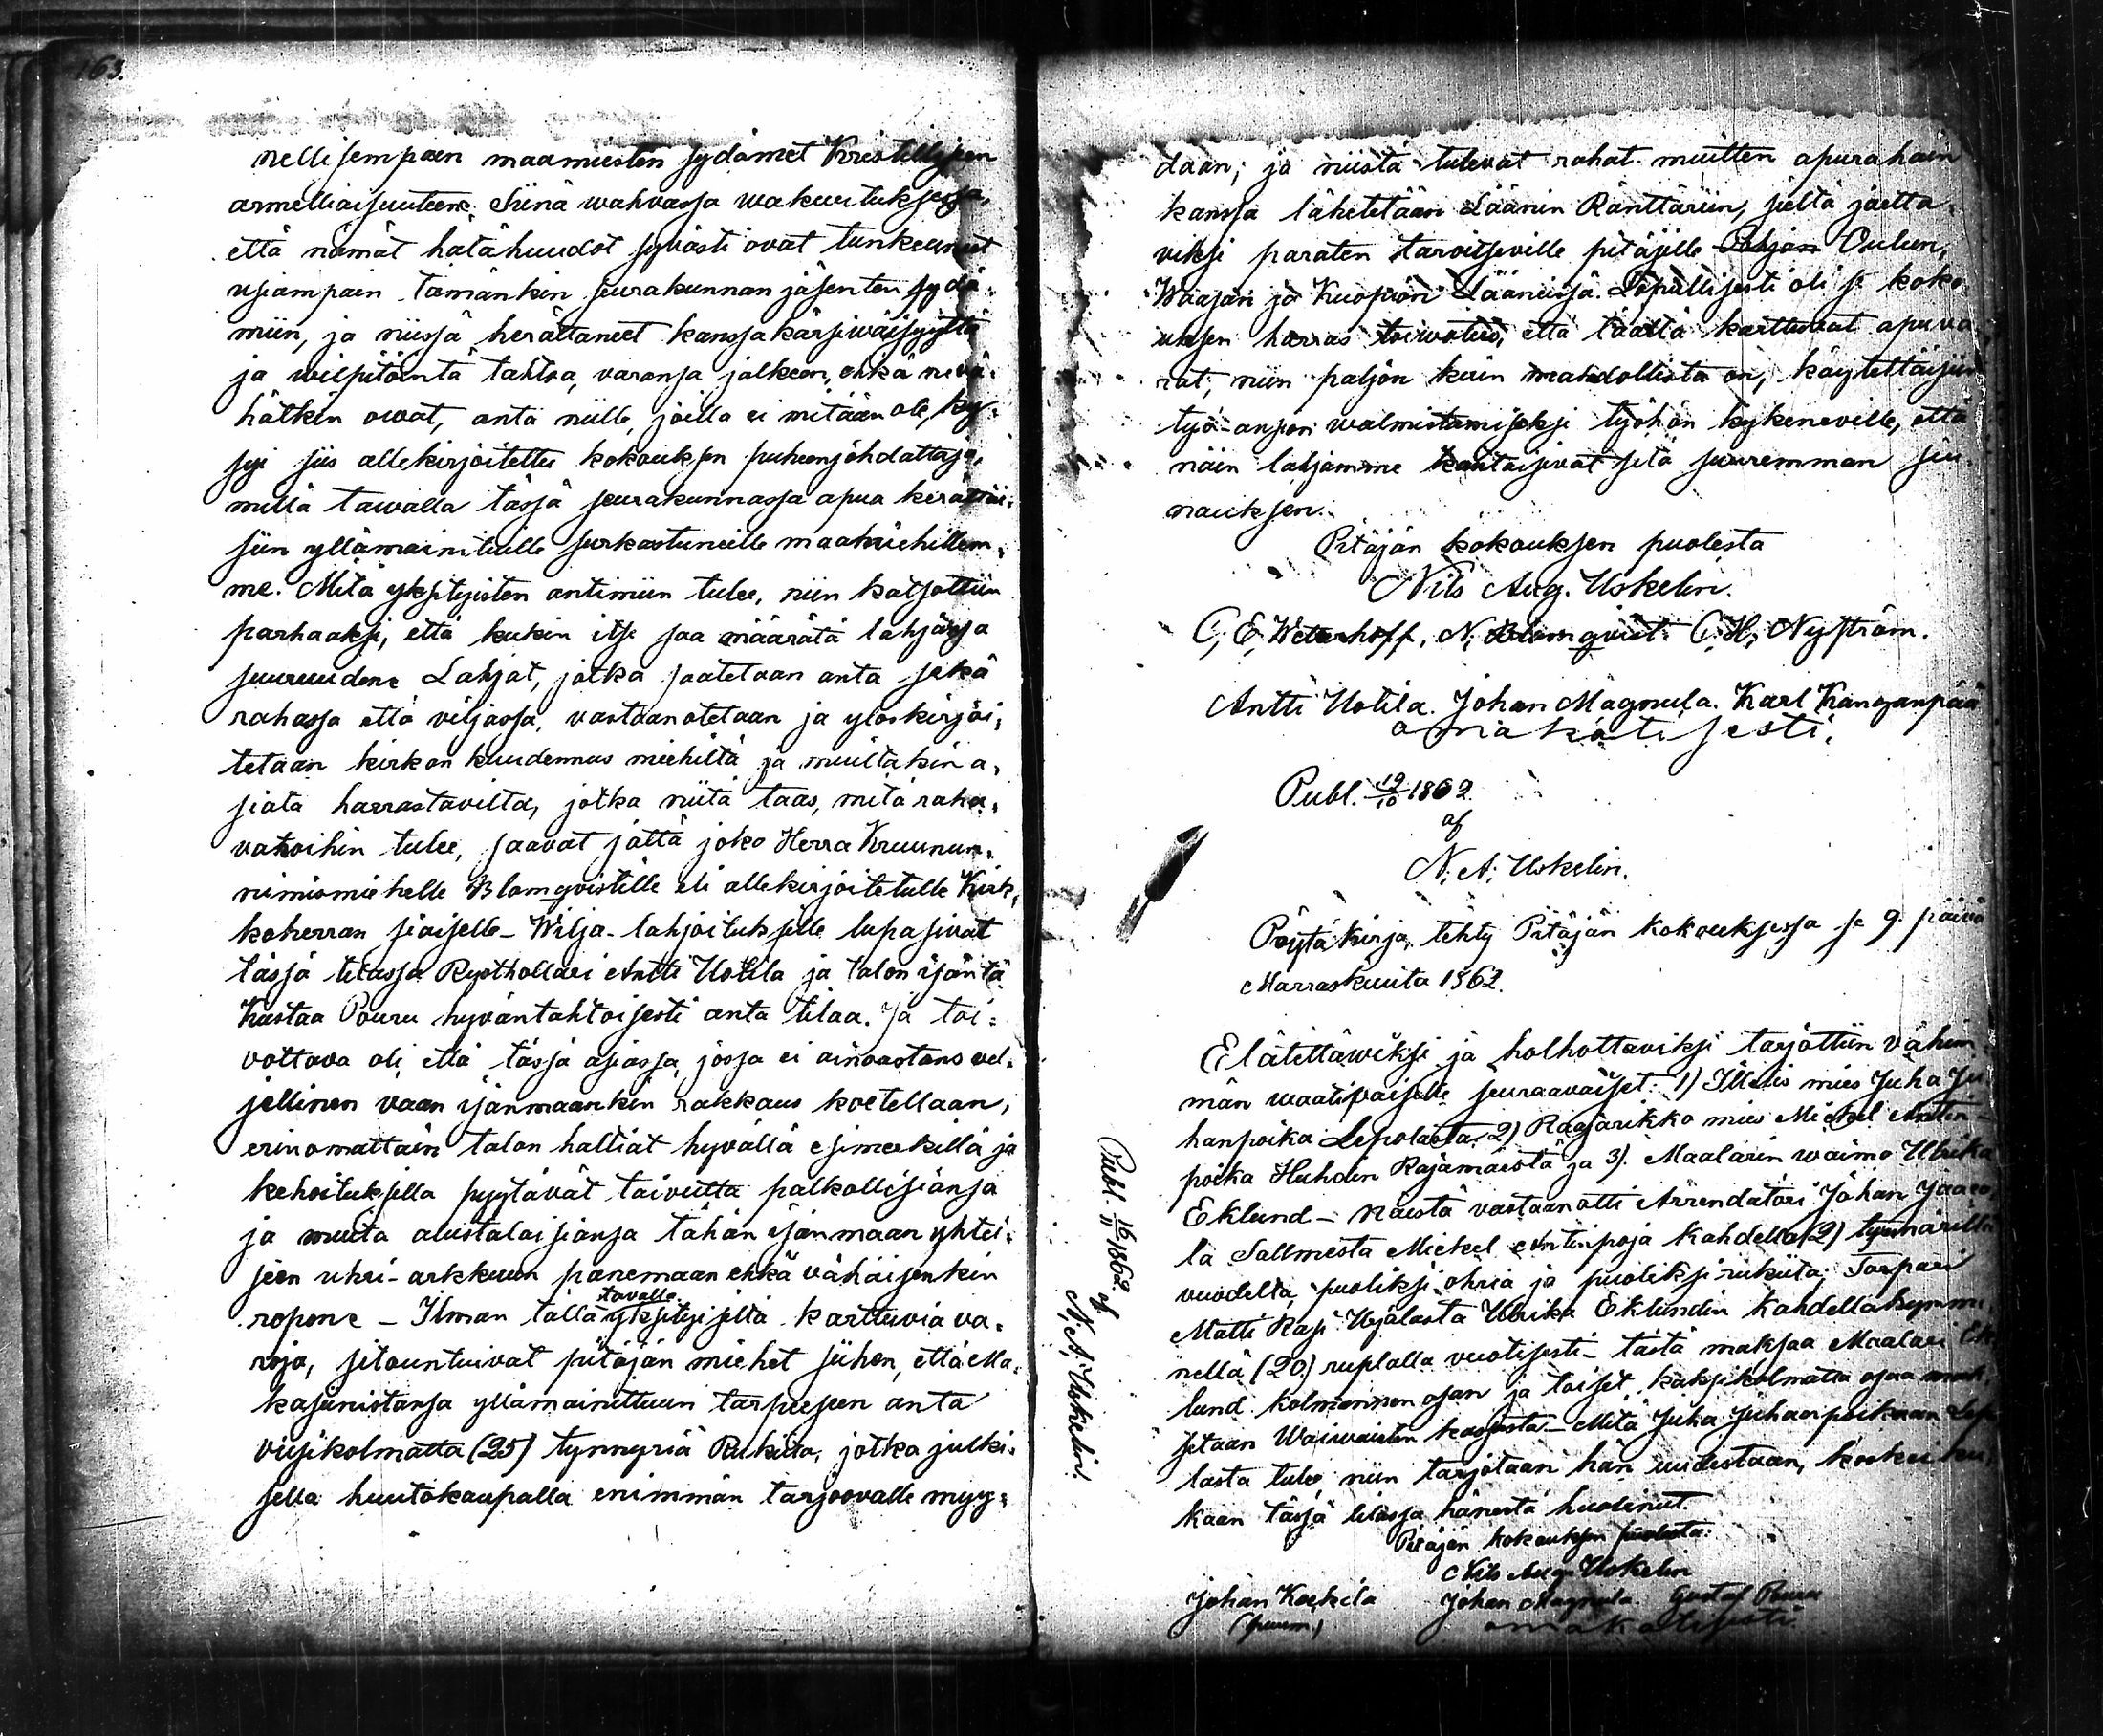 163.
nellisempaen maamiesten sydämet Kristillisen
armelliaisuuteen. Siinä wahvassa wakuutuksessa,
että nämät hätähuudot syvästi ovat tunkeuneet
usiampain tämänkin seurakunnan jäsenten sydä-
miin, ja niissä herättäneet kanssakärsiwäisyyttä
ja wilpitöintä tahtoa, varansa jälkeen, ehkä nevä-
hätkin owat, anta niille, joilla ei mitään ole, ky-
syi siis allekirjoitettu kokouksen puheenjohdattaja,
millä tawalla tässä seurakunnassa apua kerättäi-
siin yllämainituille surkastuneille maamiehillem-
me. Mitä yksityisten antimiin tulee, niin katsottiin
parhaaksi, että kukin itse saa määrätä lahjansa
suuruuden. Lahjat, jotka saatetaan anta sekä
rahassa että viljassa, vastaanotetaan ja ylöskirjoi-
tetaan kirkon kuudennus miehiltä ja muiltakin a-
siata harrastavilta, jotka niitä taas, mitä raha-
varoihin tulee, saavat jättä joko Herra Kruunun-
nimismiehelle Blomqvistille eli allekirjoitetulle Kirk-
koherran siaiselle – Wilja-lahjoituksille lupasivat
tässä tilassa Rysthollari Antti Uotila ja talon isäntä
Kustaa Pouru hyväntahtoisesti anta tilaa. Ja toi-
vottava oli, että tässä asiassa, jossa ei ainoastans vel-
jellinen vaan isänmaankin rakkaus koetellaan,
erinomattain talon haltiat hyvällä esimerkillä ja
kehoituksilla pyytävät taivutta palkollisiansa
ja muuta alustalaisiansa tähän isänmaan yhtei-
seen uhri-arkkuun panemaan ehkä vähäisenkin
ropone – Ilman tällä tavalla yksityisiltä karttuvia va-
roja, sitountuivat pitäjän miehet siihen, että Ma-
kasiinistansa yllämainittuun tarpeeseen anta
viisikolmatta (25) tynnyriä Rukiita, jotka julki-
sella huutokaupalla enimmän tarjoovalle myy-
daan; ja niistä tulevat rahat muitten apurahain
kanssa lähetetään Läänin Ränttäriin, sieltä jaetta-
viksi paraten tarvitseville pitäjille Pohjan Oulun,
Waasan ja Kuopion Lääneissä. Lopullisesti oli se koko-
uksen harras toiwotus, että täältä karttuvat apuva-
rat, niin paljon kuin mahdollista on, käytettäisiin
työ-ansion walmistamiseksi työhön kykeneville, että
näin lahjamme kantaisivat sitä suuremman siu-
nauksen.
Pitäjän kokouksen puolesta
Nils Aug. Uskelin.
C. E. Weterhoff, N. Blomqvist. C. H. Nyström.
Antti Uotila. Johan Magnula. Karl Kanganpää
omakätisesti.
Publ. 19/10 1862
af
N. A. Uskelin.
Pöytäkirja, tehty Pitäjän kokouksessa se 9. päivä
Marraskuuta 1862.
Elätettäwiksi ja holhottaviksi tarjottiin vähim-
män waativaiselle seuraavaiset: 1) mies Juha Ju-
hanpoika Lepolasta, 2) Raajarikko mies Mickel Antin-
poika Huhdin Rajamäestä ja 3). Maalarin waimo Ulrika
Eklund – Näistä vastaanotti Arrendatori Johan Jaaco-
la Sallmesta Mickel Antinpoja kahdella (2) tynnärillä
vuodelta, puoliksi ohria ja puoliksi rukiita; Torpari
Matti Kasi Ulrika Eklundin kahdellakymme-
nellä (20) ruplalla vuotisesti – tästä maksaa Maalari Ek-
lund kolmannen osan ja toiset kaksikolmatta osaa
setaan Waiwaisten kassasta – Mitä Juha Juhanpoikaan Lepo-
lasta tulee, niin tarjotaan hän uudestaan, koska ei ku-
kaan tässä tilassa hänestä huolinut.
Pitäjän kokouksen puolesta:
Nils Aug. Uskelin
Johan Kockila Johan Magnula Gustaf Pouru
(puum.) omakätisesti
Publ. 16/11 1862. af
N. A. Uskelin.